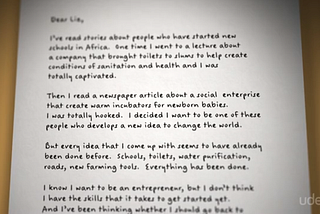 Dear Lie,
I've read stories about people who have started new
schools in Africa. One time I went to a lecture about
a company that brought toilets to slums to help create
conditions of sanitation and health and I was
totally captivated.
Then I read a newspaper article about a social enterprise
that create warm incubators for newborn babies.
I was totally hooked. I decided I want to be one of these
people who develops a new idea to change the world.
But every idea that I come up with seems to have already
been done before. Schools, toilets, water purification,
roads, new farming tools. Everything has been done.
I know I want to be an entrepreneur, but I don't think
I have the skills that it takes to get started yet.
And I've been thinking whether I should go back to